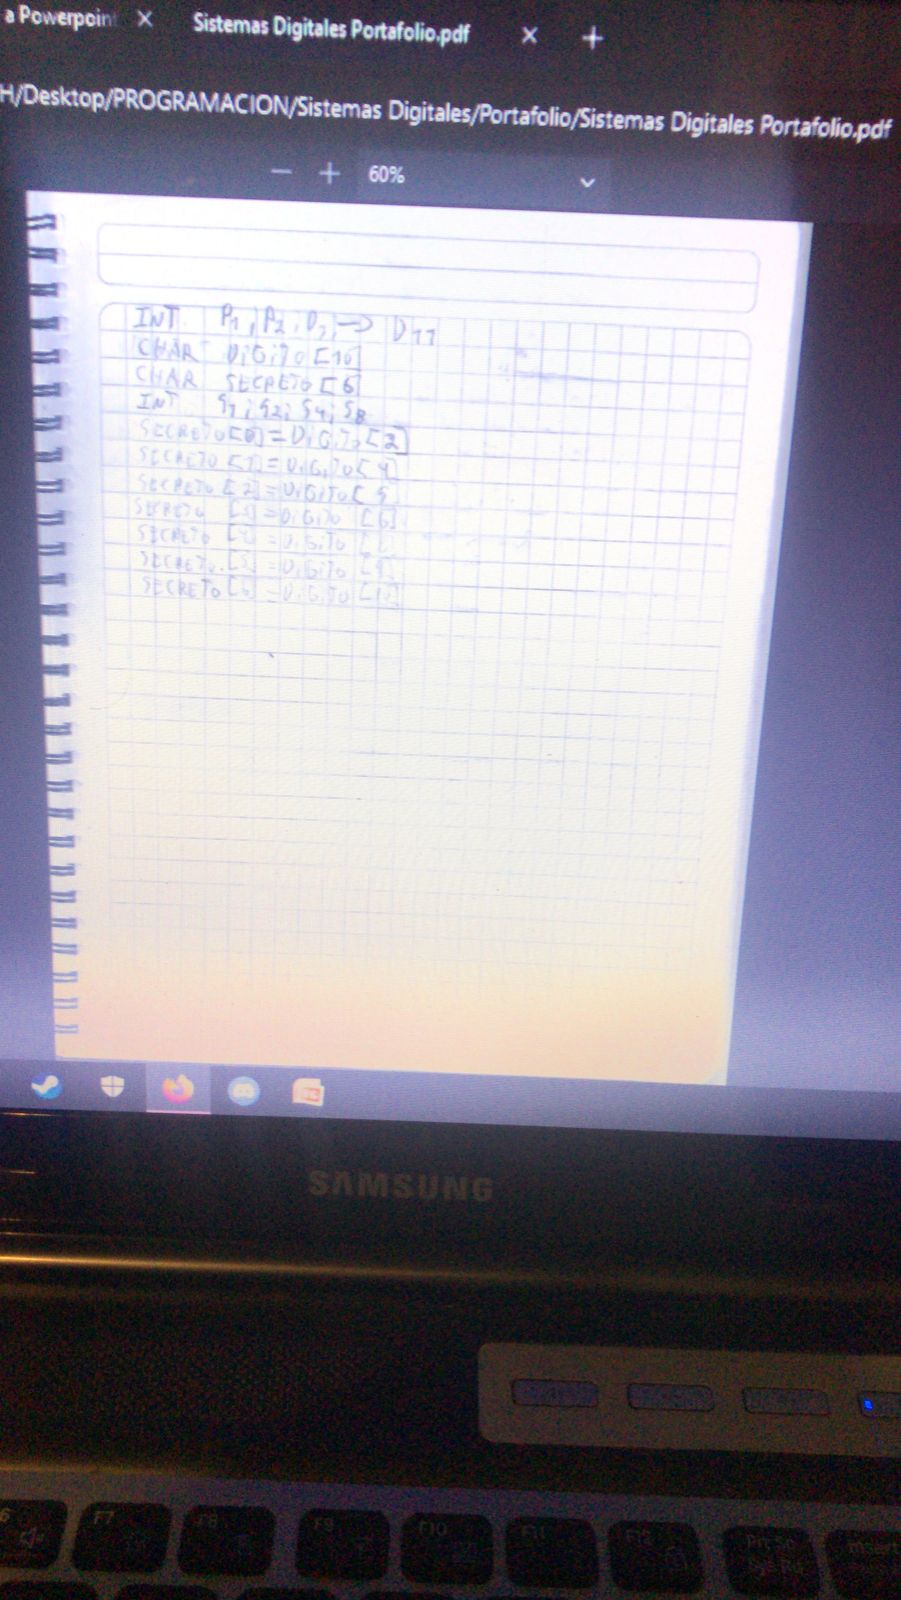 a Powerpoint X Sistemas Digitales Portafolio.pdf X +
H/Desktop/PROGRAMACION/Sistemas Digitales/Portafolio/Sistemas Digitales Portafolio.pdf
— + 60%
INT P1, P2, D3, → D11
CHAR DIGITO [10]
CHAR SECRETO [6]
INT S1, S2, S4, S8
SECRETO [0] = DIGITO [2]
SECRETO [1] = DIGITO [4]
SECRETO [2] = DIGITO [5
SECRETO = DIGITO [6]
SECRETO = DIGITO
SECRETO = DIGITO
SECRETO = DIGITO
SAMSUNG
F7 F8 F9 F10 F11 F12 Prt Sc Insert
Sys Rq